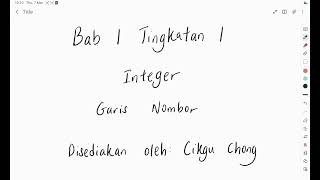 Title
Bab 1 Tingkatan 1
Integer
Garis Nombor
Disediakan oleh: Cikgu Chong